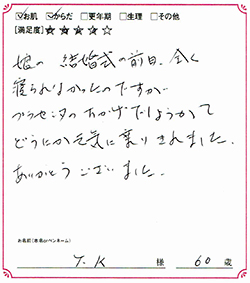 ☑お肌 ☑からだ □更年期 □生理 □その他
[満足度]★★★★☆
娘の結婚式の前日、全く
寝られなかったのですが
プラセンタのおかげでしょうかて
どうにか元気に乗りきれました。
ありがとうございました。
お名前(本名orペンネーム)
T.K 様 60 歳